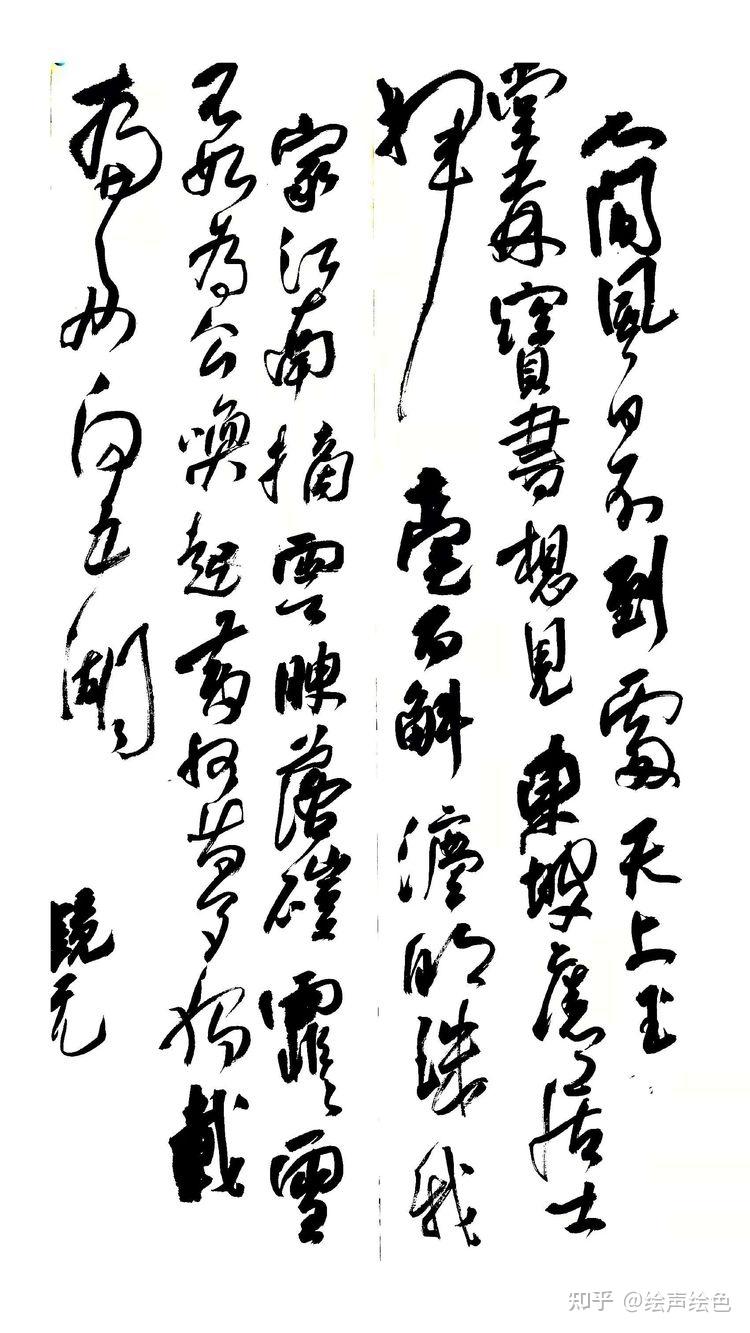 人間風日不到處天上玉
堂森寶書想見東坡舊居士
揮毫百斛瀉明珠我
家江南摘雲腴落磑霏霏雪
不如為公喚起黃州夢獨載
扁舟向五湖
知乎 @绘声绘色